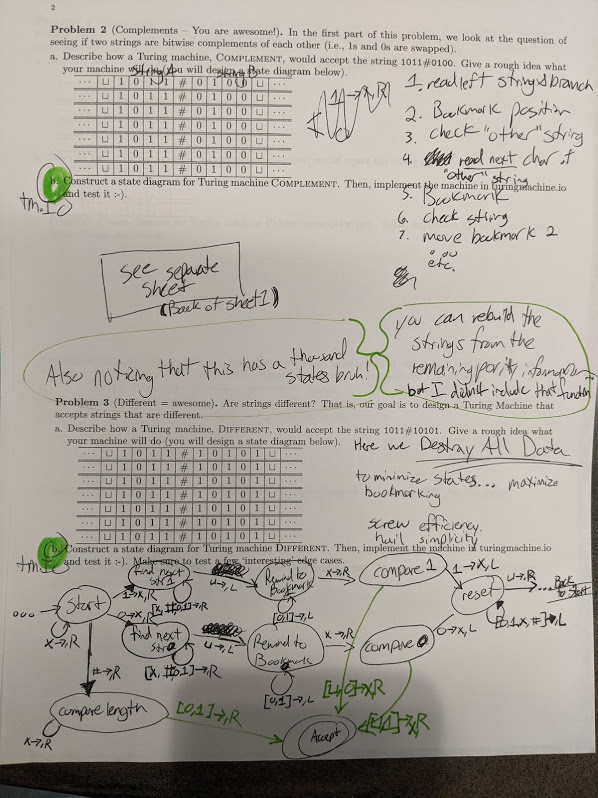 2
Problem 2 (Complements – You are awesome!). In the first part of this problem, we look at the question of
seeing if two strings are bitwise complements of each other (i.e., 1s and 0s are swapped).
a. Describe how a Turing machine, COMPLEMENT, would accept the string 1011#0100. Give a rough idea what
your machine will do (you will design a state diagram below).
String A
String B
··· ⊔ 1 0 1 1 # 0 1 0 0 ⊔ ···
··· ⊔ 1 0 1 1 # 0 1 0 0 ⊔ ···
··· ⊔ 1 0 1 1 # 0 1 0 0 ⊔ ···
··· ⊔ 1 0 1 1 # 0 1 0 0 ⊔ ···
··· ⊔ 1 0 1 1 # 0 1 0 0 ⊔ ···
··· ⊔ 1 0 1 1 # 0 1 0 0 ⊔ ···
··· ⊔ 1 0 1 1 # 0 1 0 0 ⊔ ···
1. read left string & branch
2. Bookmark position
3. check "other" string
4. read next char of
"other" string
5. Bookmark
6. check string
7. move bookmark 2
etc.
b. Construct a state diagram for Turing machine COMPLEMENT. Then, implement the machine in turingmachine.io
and test it :-).
tm.Io
see separate
sheet
(Back of sheet 1)
Also noticing that this has a thousand
states bruh!
you can rebuild the
strings from the
remaining parity information
but I didn't include that function
Problem 3 (Different = awesome). Are strings different? That is, our goal is to design a Turing Machine that
accepts strings that are different.
a. Describe how a Turing machine, DIFFERENT, would accept the string 1011#10101. Give a rough idea what
your machine will do (you will design a state diagram below).
··· ⊔ 1 0 1 1 # 1 0 1 0 1 ⊔ ···
··· ⊔ 1 0 1 1 # 1 0 1 0 1 ⊔ ···
··· ⊔ 1 0 1 1 # 1 0 1 0 1 ⊔ ···
··· ⊔ 1 0 1 1 # 1 0 1 0 1 ⊔ ···
··· ⊔ 1 0 1 1 # 1 0 1 0 1 ⊔ ···
··· ⊔ 1 0 1 1 # 1 0 1 0 1 ⊔ ···
··· ⊔ 1 0 1 1 # 1 0 1 0 1 ⊔ ···
Here we Destroy All Data
to minimize states... maximize
bookmarking
screw efficiency.
hail simplicity
b. Construct a state diagram for Turing machine DIFFERENT. Then, implement the machine in turingmachine.io
and test it :-). Make sure to test a few 'interesting' edge cases.
tm.Io
Start
x→,R
1→x,R
find next
str 1
[x,#,0,1]→,R
⊔→,L
Rewind to
Bookmark
[0,1]→,L
x→,R
compare 1
1→x,L
reset
⊔→,R
Back
to Start
[0,1,x,#]→,L
0→x,R
find next
str 0
[x,#,0,1]→,R
⊔→,L
Rewind to
Bookmark
[0,1]→,L
x→,R
compare 0
0→x,L
#→,R
compare length
x→,R
[0,1]→,R
Accept